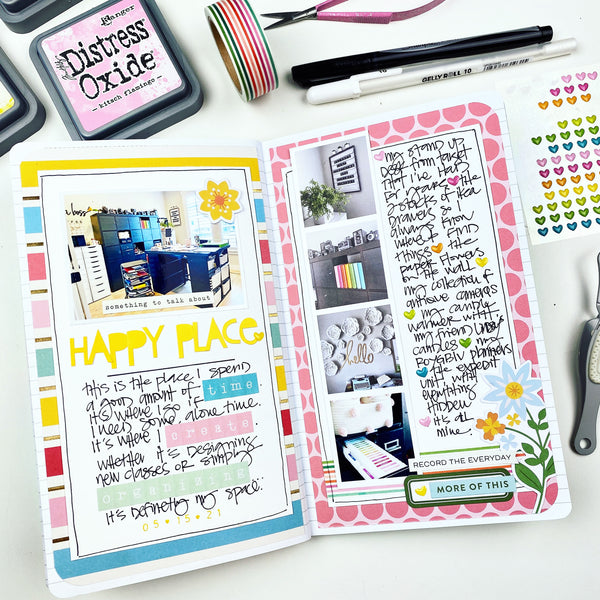 Ranger
Distress
Oxide
- kitsch flamingo -
GELLY ROLL 10
something to talk about
HAPPY PLACE
this is the place I spend
a good amount of time.
it's where I go if I
need some alone time.
it's where I create
whether it's designing
new classes or simply
organizing
it's definetly my space.
05•15•21
hello
my stand up
desk from target
that i've had
for years the
stacks of ikea
drawers so I
always know
where to find
things the
paper flowers
on the wall
my collection of
antique cameras
my candle
warmer with
my friend
candles my
planners
the expedit
unit with
everything
hidden
it's all
mine.
RECORD THE EVERYDAY
MORE OF THIS